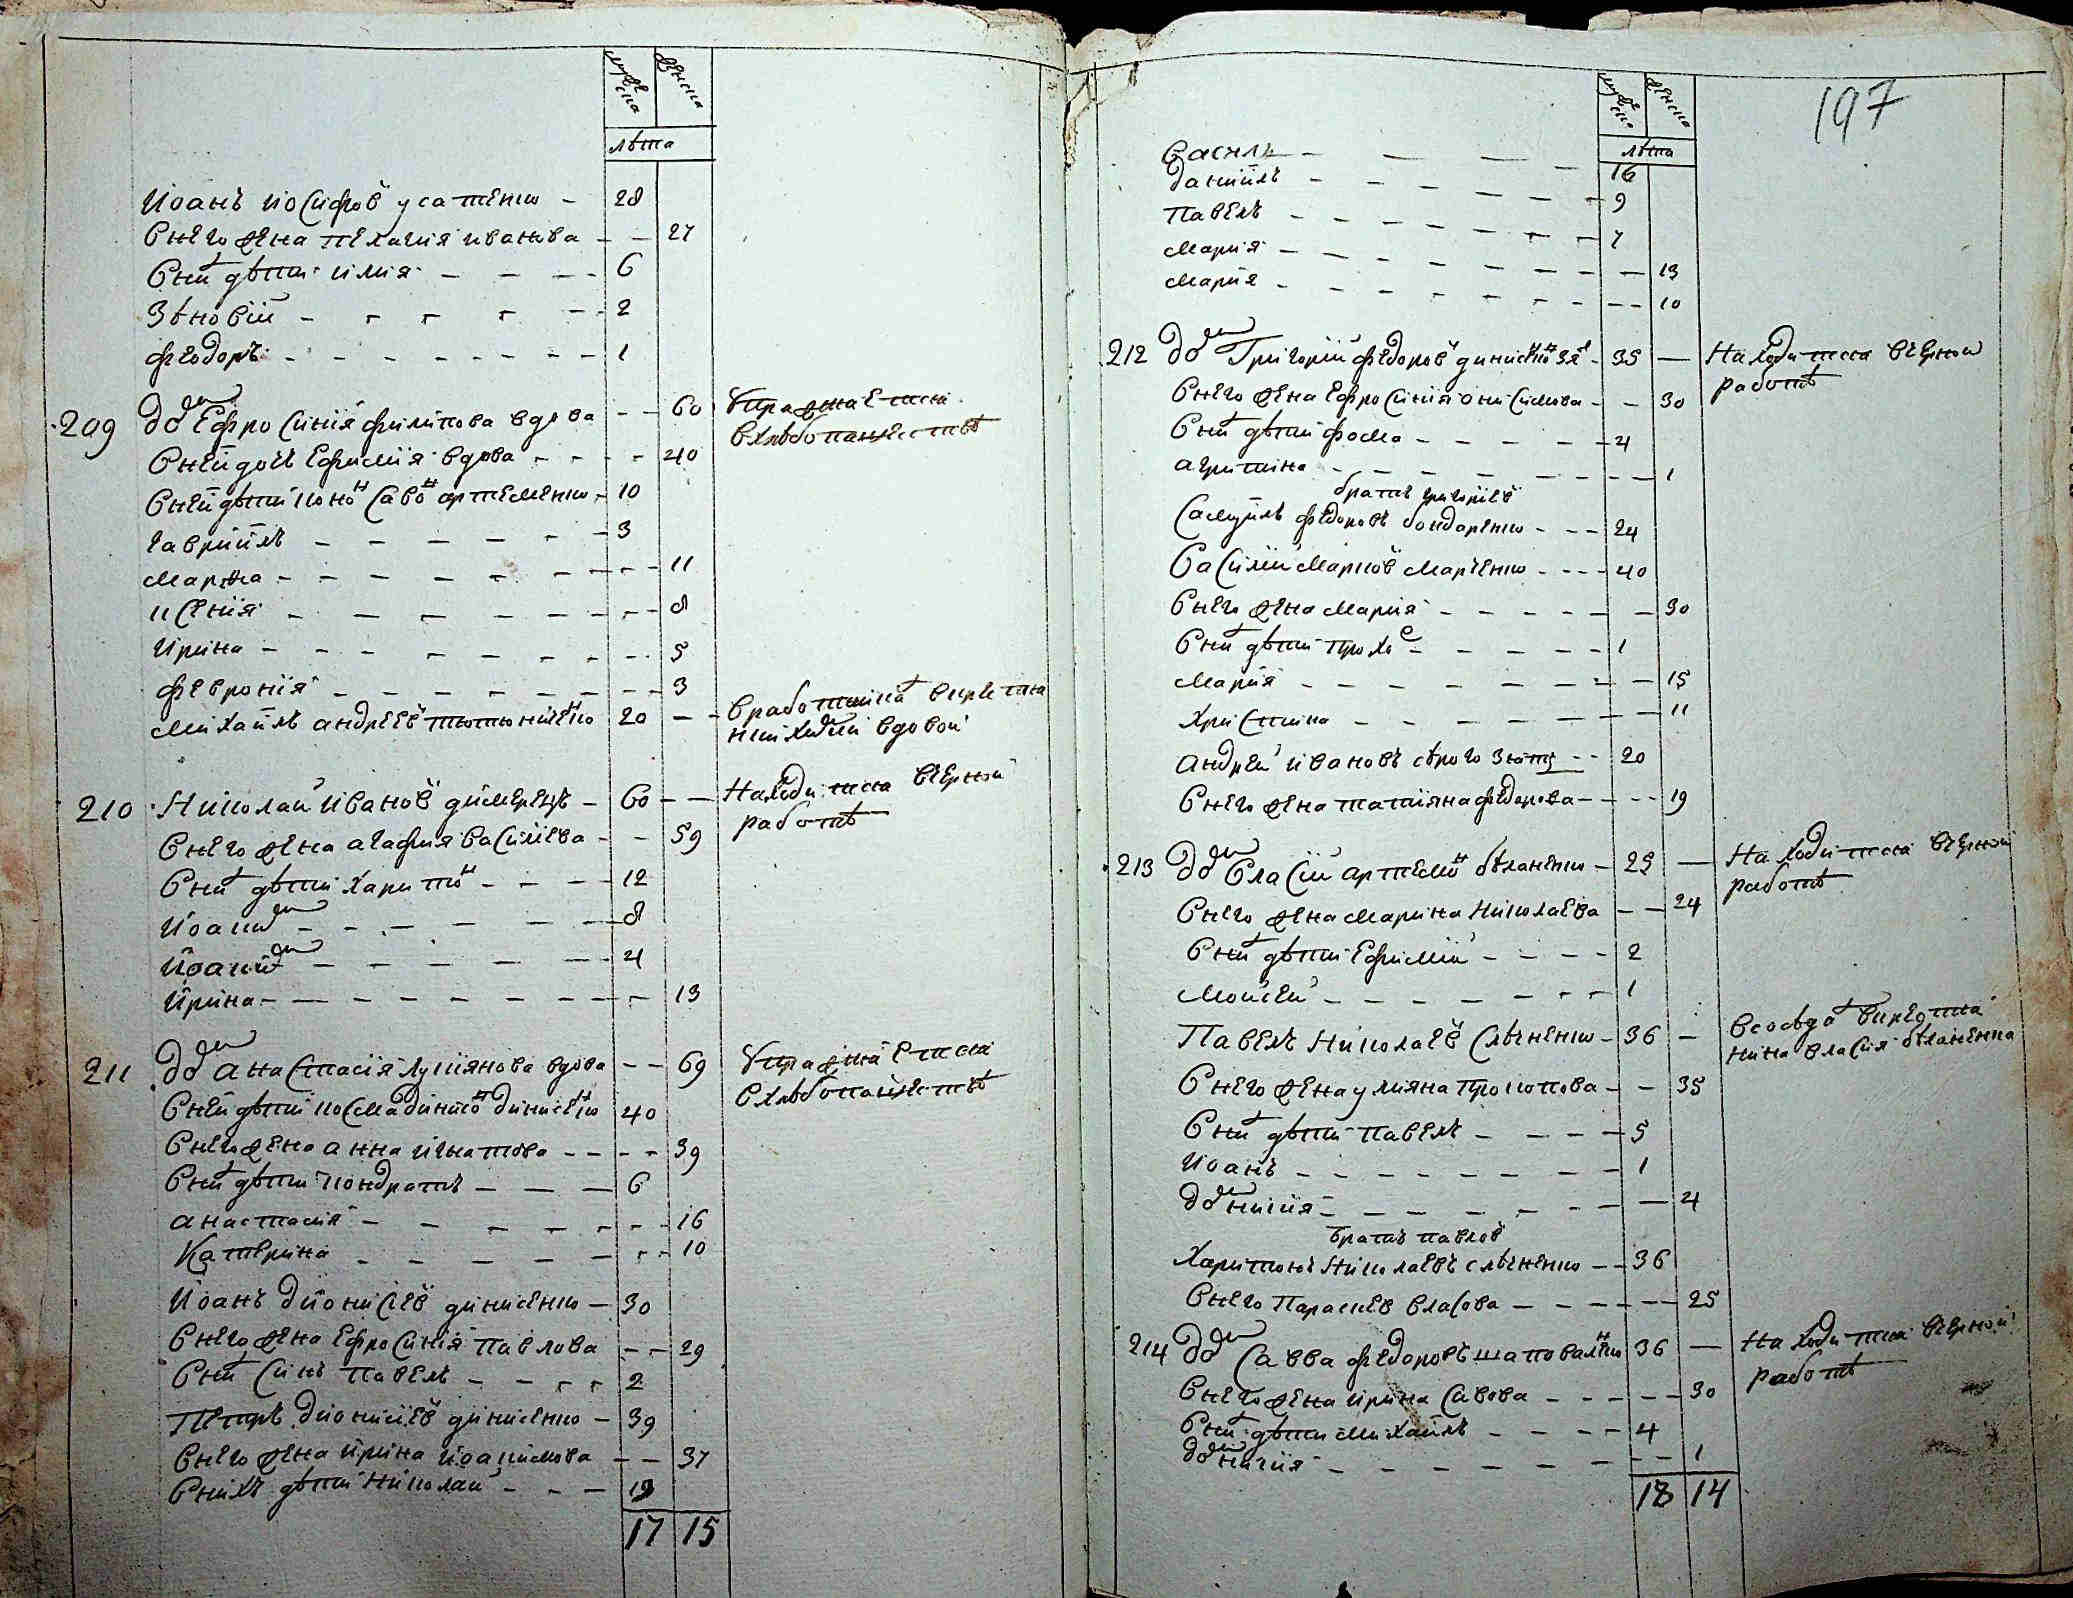 мужеска женска
лѣта
Иоанъ иосифов усатенко 28
Снего жена пелагия иванова 27
Сних дѣти илия 6
Зѣновий 2
феодоръ 1
209 дом Ефросиния филипова вдова 60 Упражнается
вхлѣбопашестве
Сней дочь Ефимия вдова 40
Сней дѣти конон Савон артеменко 10
гавриилъ 3
марфа 11
ксения 8
ирина 5
феврония 3
михаилъ андреев тютюниченко 20 вработниках вкрестьянки
вдовой
210 Николай иванов димерецъ 60 Находится вчерной
работѣ
Снего жена агафия василиева 59
Сних дѣти харитон 12
Иоаким 8
Иоаким 4
Ирина 13
211 дом анастасия лукиянова вдова 69 Упражнается
вхлѣбопашествѣ
Сней дѣти косма динисенко 40
Снего жена анна игнатова 39
Сних дѣти кондратъ 6
анастасия 16
Катерина 10
Иоанъ дионисиев динисенко 30
Снего жена Ефросиния павлова 29
Сних синъ павелъ 2
Петръ дионисиев динисенко 39
Снего жена ирина иоакимова 37
Снихъ дѣти николай 19
17 15
197
мужеска женска
лѣта
Василь 16
даниилъ 9
Павелъ 7
Мария 13
мария 10
212 дом Григорий федоров 35 Находится вчерной
работѣ
Снего жена Ефросиния онисимова 30
Сних дѣти фома 4
агрипина 1
братъ григориев
Самуилъ федоровъ бондаренко 24
Василий марков марченко 40
Снего жена мария 30
Сних дѣти прохор 1
мария 15
христина 11
андрей ивановъ 20
Снего жена татияна федорова 19
213 дом Власий артемов бѣланенко 25 Находится вчерной
работѣ
Снего жена марина николаева 24
Сних дѣти Ефимий 2
моисей 1
Павелъ николаев слѣченко 36 всосѣдах вкрестья
нина власия бѣланенка
Снего жена улияна прокопова 35
Сних дѣти павелъ 5
Иоанъ 1
домникия 4
братъ павлов
харитонъ николаевъ слѣченко 36
Снего Параскев власова 25
214 дом Савва федоровъ шаповаленко 36 Находится вчерной
работѣ
Снего жена ирина савова 30
Сних дѣти михаилъ 4
домникия 1
18 14